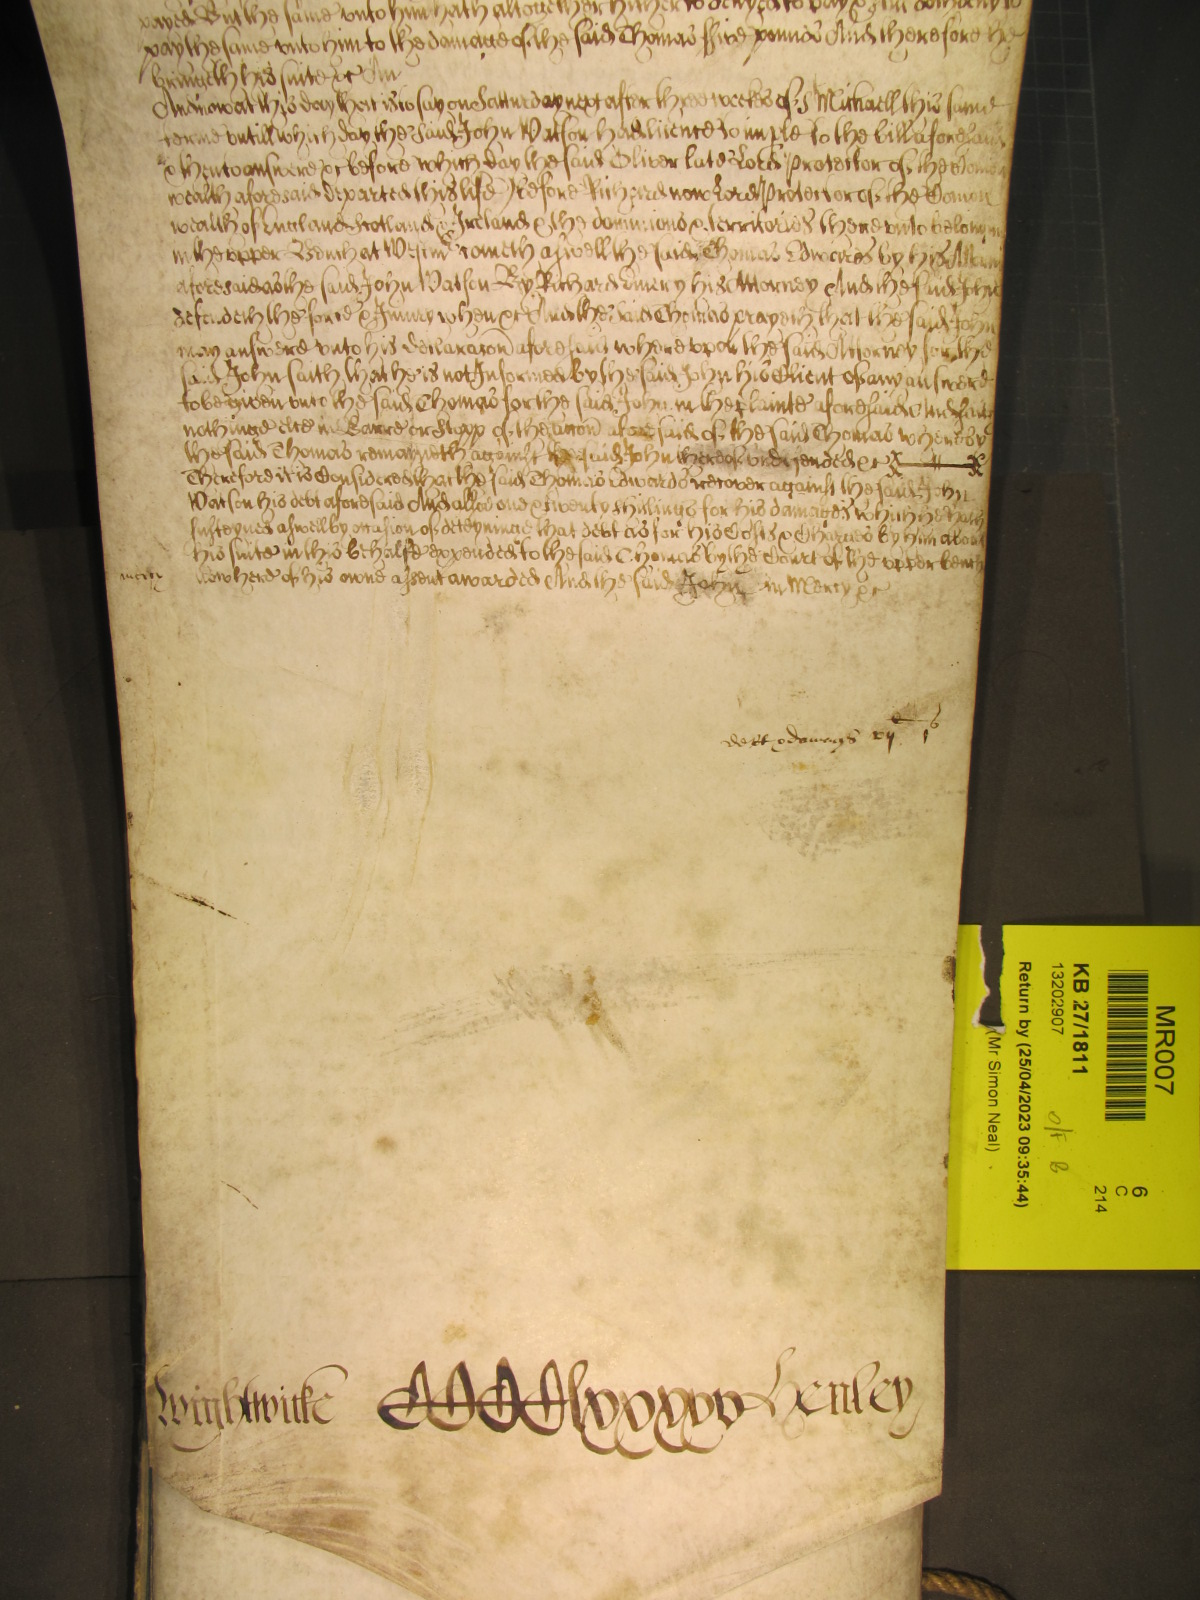 payed But the same unto him hath altogether hitherto denyed to pay & still doth deny to
pay the same unto him to the damage of the said Thomas ffive pounds And therefore he
bringeth his suite &c
And now at this day that is to say on Satturday next after three weekes of S Michaell this same
terme untill which day the said John Watson had licence to imple to the bill aforesaid
& then to answere &c before which day the said Oliver late Lord Protector of the Comon
wealth aforesaid departed this life Before Richard now Lord Protector of the Comon
wealth of England Scotland & Ireland & the dominions & territories thereunto belonging
in the upper Bench at Westm cometh aswell the said Thomas Edwardes by his Attorney
aforesaid as the said John Watson By Richard Emery his Attorney And the said John
defendeth the force & Injury when &c And the said Thomas prayeth that the said John
may answere unto his declaracon aforesaid whereupon the said Attorney for the
said John saith that he is not Informed by the said John his Client of any answere
to be given unto the said Thomas for the said John in the plainte aforesaid And saith
nothinge else in Barre or Stopp of the accon aforesaid of the said Thomas whereby
the said Thomas remayneth against the said John thereof undefended &c
Therefore it is Considered that the said Thomas Edwards recover against the said John
Watson his debt aforesaid And also one & twenty shillings for his damages which he hath
susteyned aswell by occasion of deteyninge that debt as for his Costs & Charges by him about
his suite in this behalfe expended to the said Thomas by the Court of the upper bench
now here of his owne assent awarded And the said John in Mercy &c
mercy
debt & damages xij
Wightwicke CCCClxxxxv Henley
MR007
KB 27/1811
13202907
Return by (25/04/2023 09:35:44)
(Mr Simon Neal)
O/F B
6
C
214